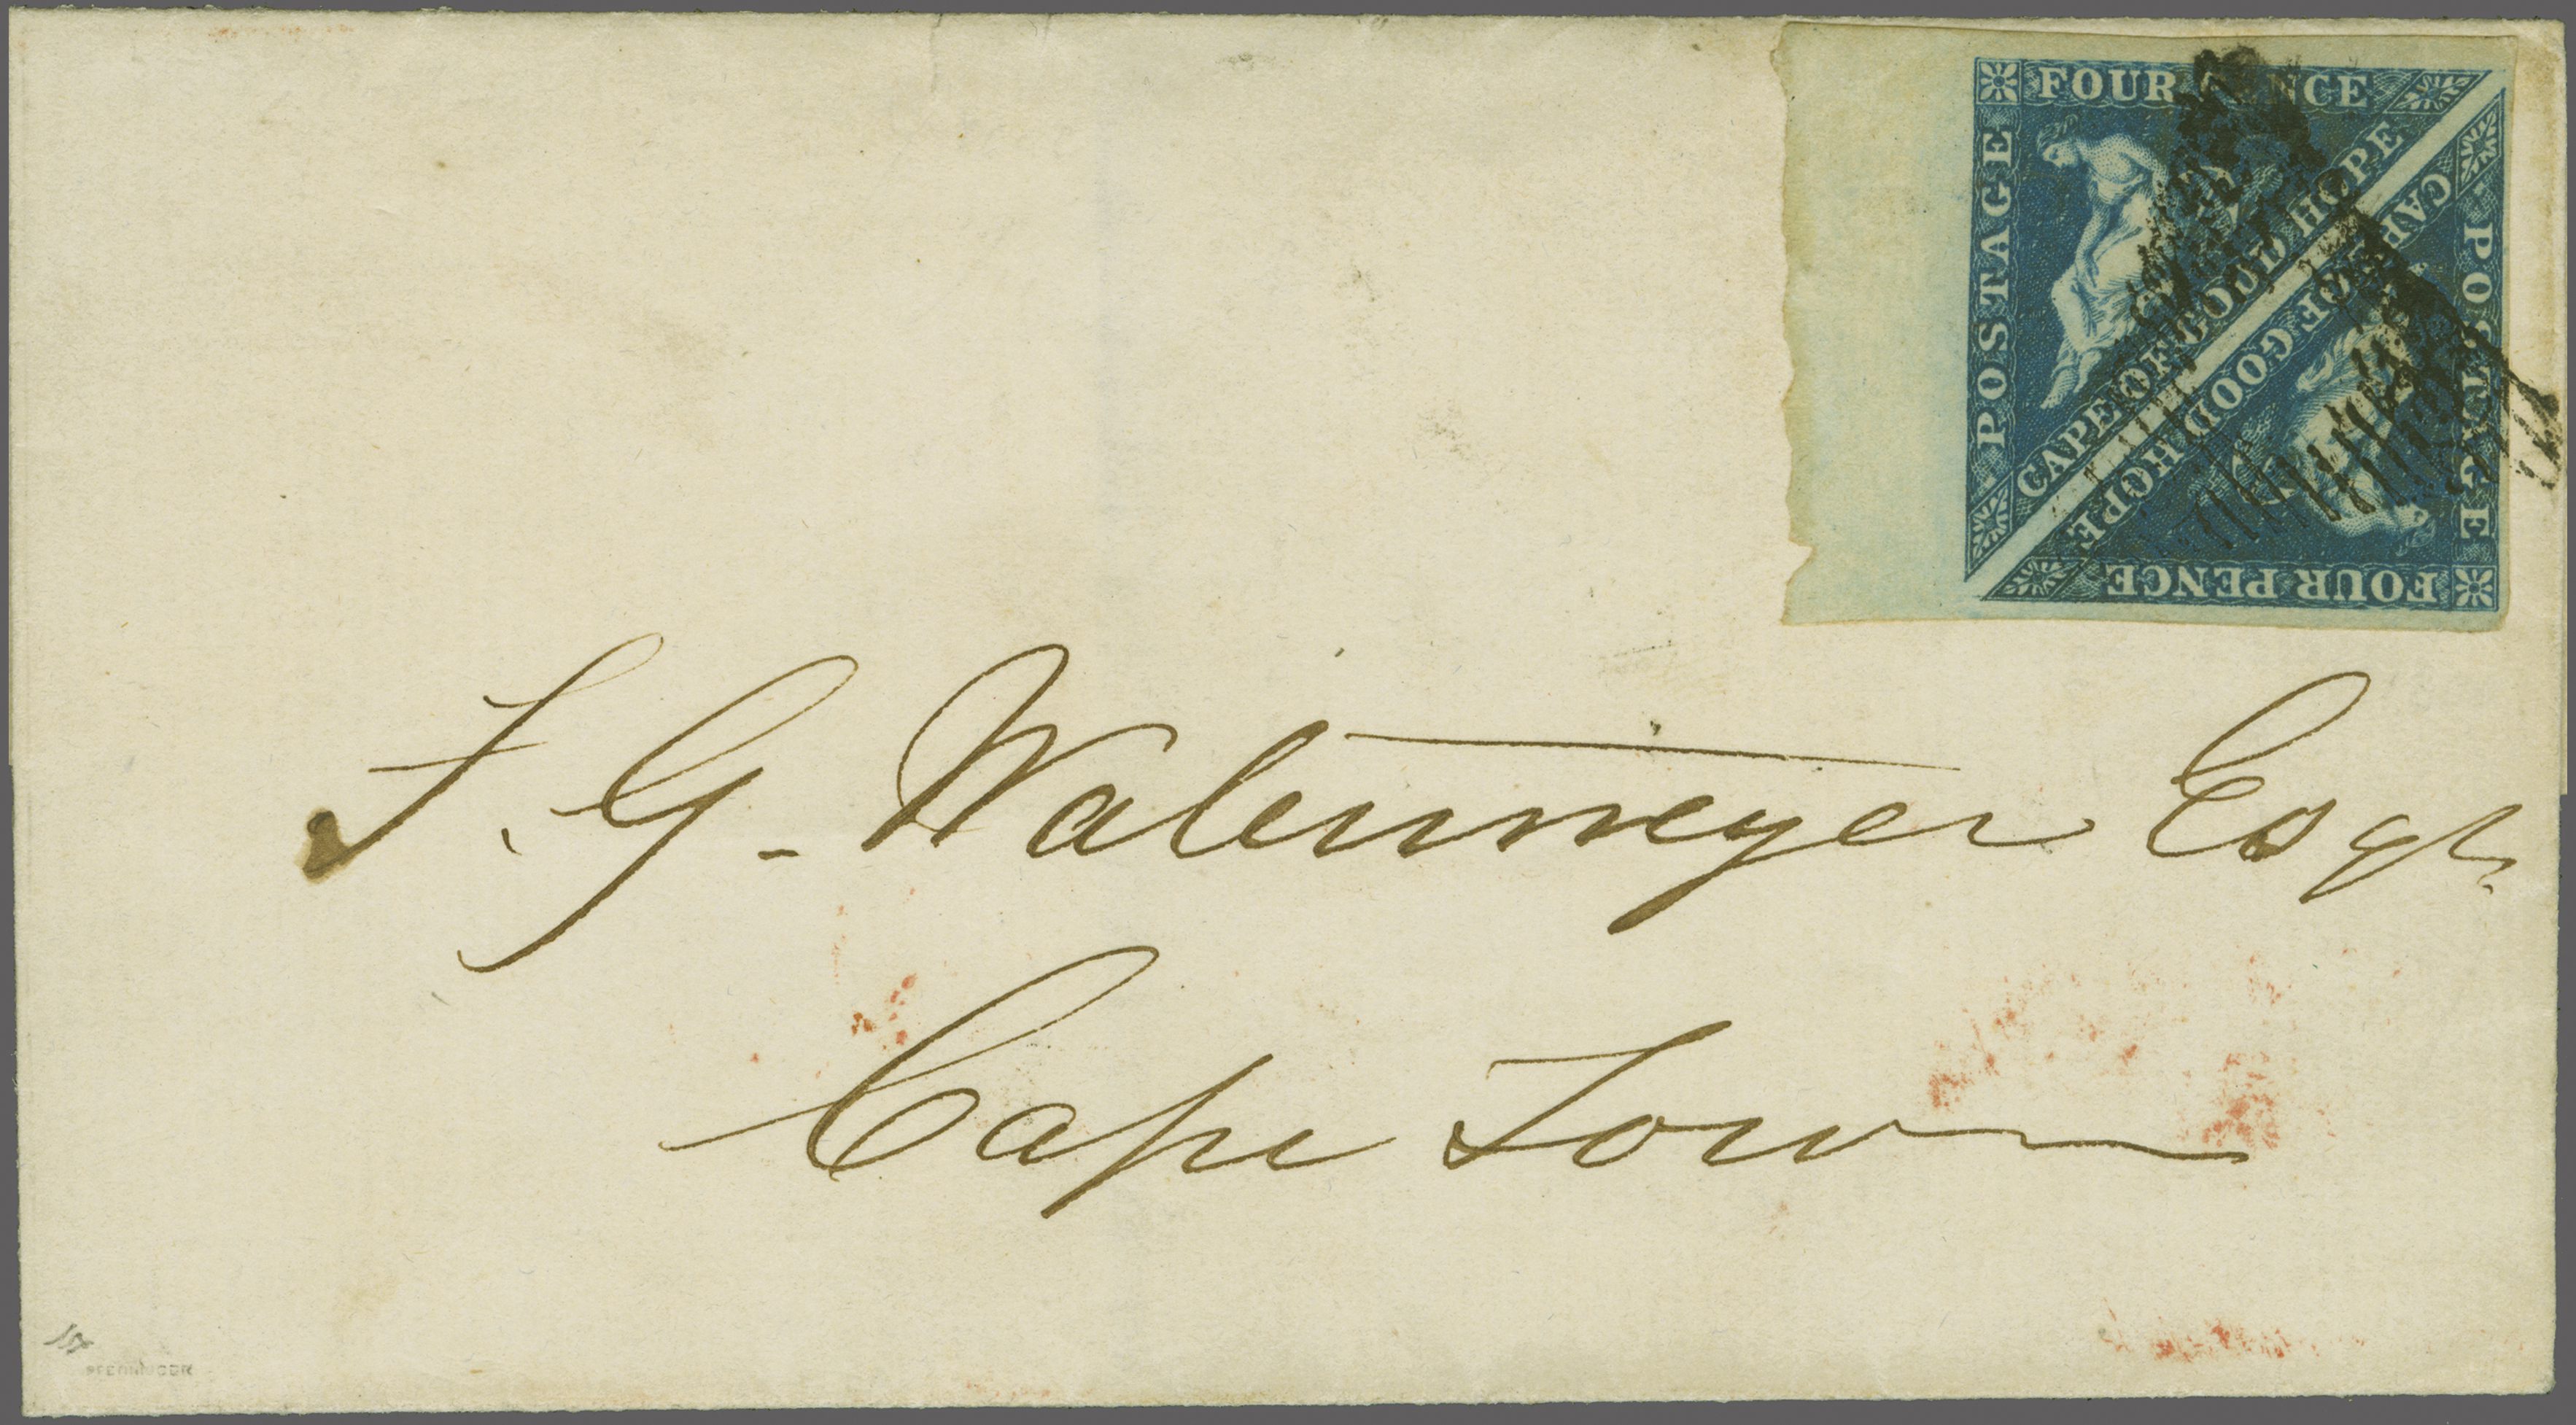 FOUR PENCE
POSTAGE
CAPE OF GOOD HOPE
CAPE OF GOOD HOPE
POSTAGE
FOUR PENCE
F. G. Watermeyer Esqr.
Cape Town
PFENNINGER